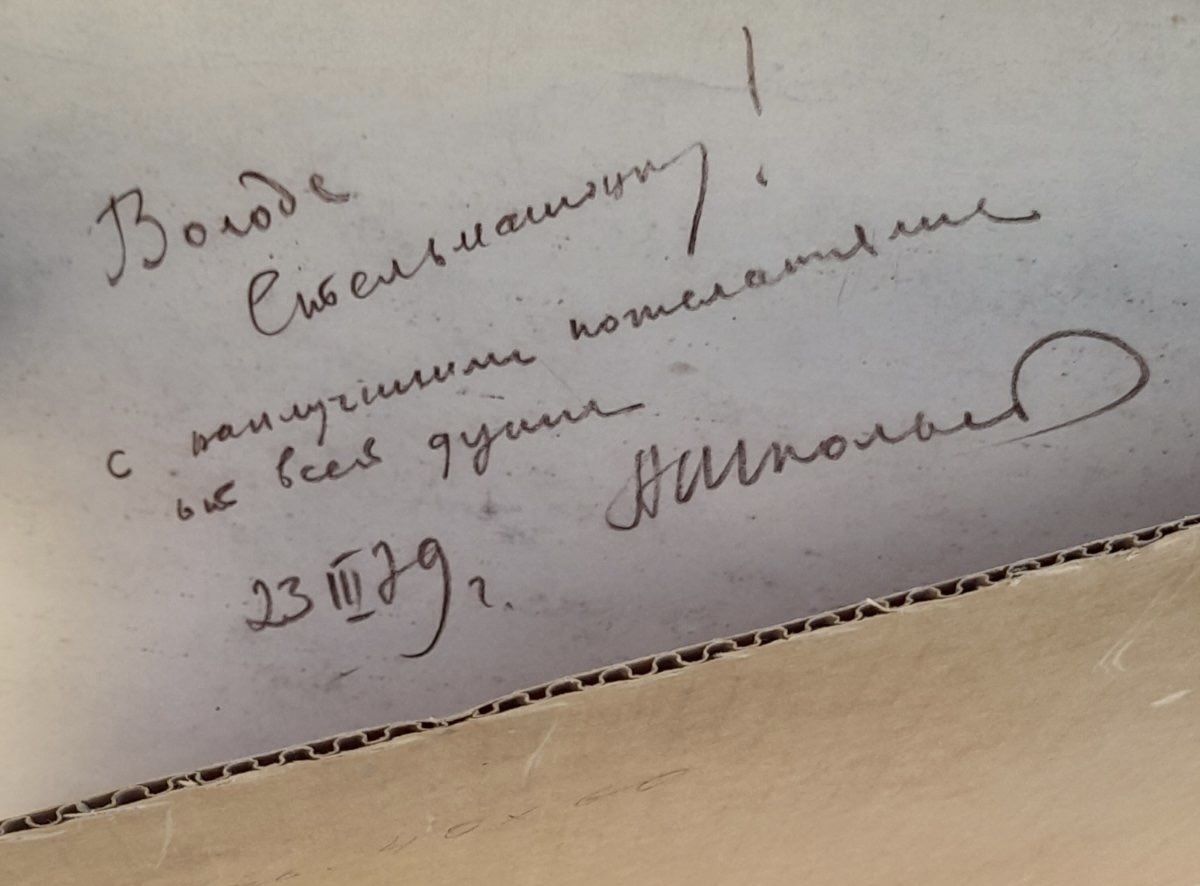 Володе
Стельмашоцку!
с наилучшими пожеланиями
от всей души
АШкольн
23 III 79 г.